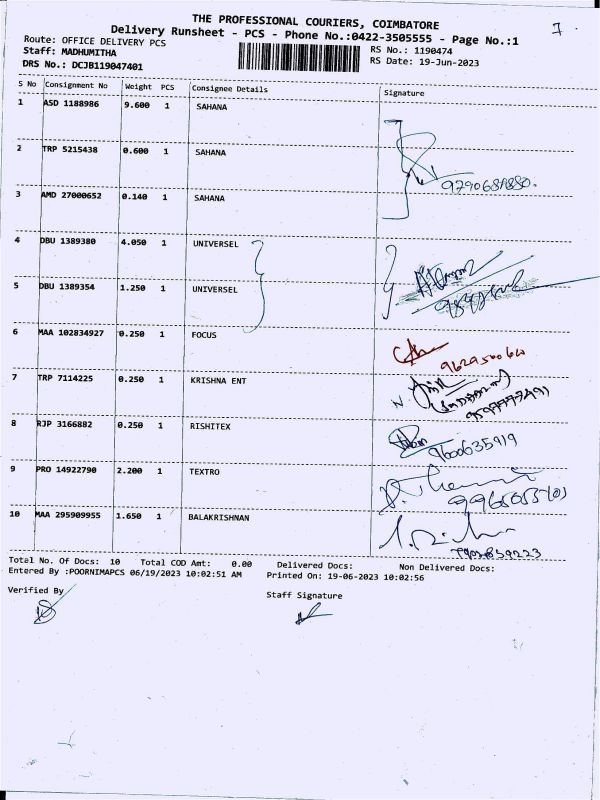 THE PROFESSIONAL COURIERS, COIMBATORE
Delivery Runsheet - PCS - Phone No.:0422-3505555 - Page No.:1
Route: OFFICE DELIVERY PCS
RS No.: 1190474
Staff: MADHUMITHA
RS Date: 19-Jun-2023
DRS No.: DCJB119047401
S No Consignment No Weight PCS Consignee Details Signature
1 ASD 1188986 9.600 1 SAHANA
2 TRP 5215438 0.600 1 SAHANA
3 AMD 27000652 0.140 1 SAHANA
4 DBU 1389380 4.050 1 UNIVERSEL
5 DBU 1389354 1.250 1 UNIVERSEL
6 MAA 102834927 0.250 1 FOCUS
7 TRP 7114225 0.250 1 KRISHNA ENT
8 RJP 3166882 0.250 1 RISHITEX
9600635919
9 PRO 14922790 2.200 1 TEXTRO
10 MAA 295909955 1.650 1 BALAKRISHNAN
Total No. Of Docs: 10 Total COD Amt: 0.00 Delivered Docs: Non Delivered Docs:
Entered By :POORNIMAPCS 06/19/2023 10:02:51 AM Printed On: 19-06-2023 10:02:56
Verified By
Staff Signature